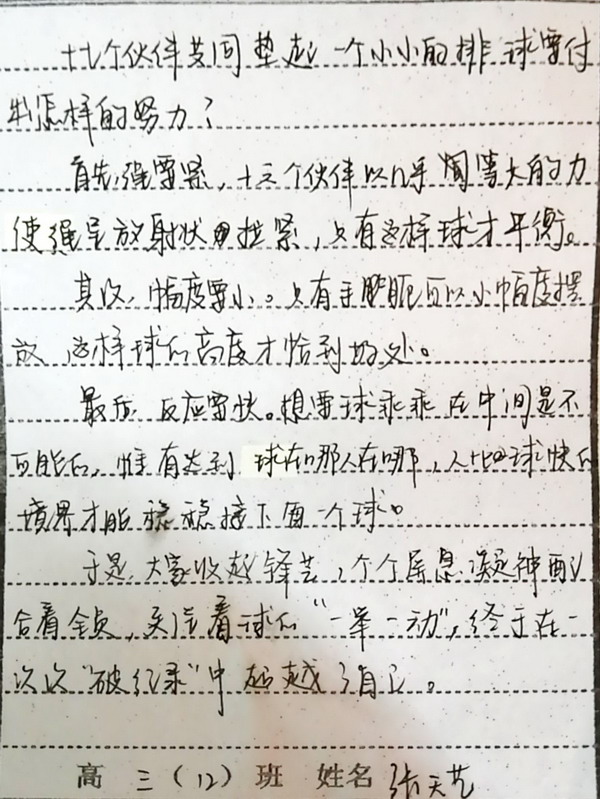 十七个伙伴共同垫起一个小小的排球要付
出怎样的努力?
首先绳要紧,十三个伙伴以几乎同等大的力
使绳呈放射状拉紧,只有这样球才平衡。
其次,幅度要小。只有手腕可以小幅度摆
放 这样球的高度才恰到好处。
最后,反应要快。想要球乖乖在中间是不
可能的,惟有达到 球在哪人在哪,人比球快的
境界才能稳稳接下每一个球。
于是,大家收起锋芒,个个屏息凝神配
合着全员,关注着球的"一举一动",终于在一
次次"破纪录"中超越了自己。
高三(12)班 姓名 张天艺